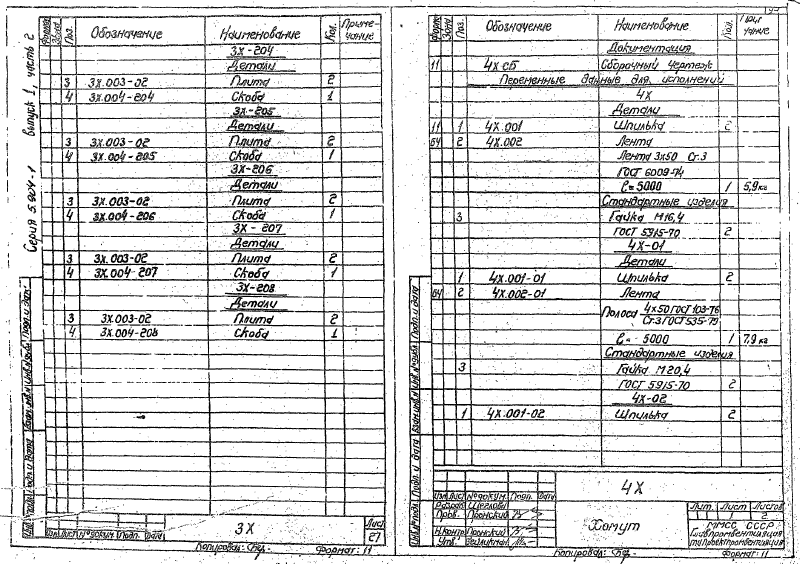 Серия 5.904-1 Выпуск 1, часть 2
Форма Зона Поз. Обозначение Наименование Кол. Примечание
3Х-204
Детали
3 3Х.003-02 Плита 2
4 3Х.004-204 Скоба 1
3Х-205
Детали
3 3Х.003-02 Плита 2
4 3Х.004-205 Скоба 1
3Х-206
Детали
3 3Х.003-02 Плита 2
4 3Х.004-206 Скоба 1
3Х-207
Детали
3 3Х.003-02 Плита 2
4 3Х.004-207 Скоба 1
3Х-208
Детали
3 3Х.003-02 Плита 2
4 3Х.004-208 Скоба 1
Изм Лист №докум. Подп. Дата
3Х
Лист
27
Копировал: Формат: 11
Поз. Обозначение Наименование Кол. Примечание
Документация
11 4Х СБ Сборочный чертеж
Переменные данные для исполнений
4Х
Детали
11 1 4Х.001 Шпилька 2
БЧ 2 4Х.002 Лента
Лента 3х50 Ст.3
ГОСТ 6009-74
ℓ= 5000 1 5,9 кг
Стандартные изделия
3 Гайка М16,4
ГОСТ 5915-70 2
4Х-01
Детали
1 4Х.001-01 Шпилька 2
БЧ 2 4Х.002-01 Лента
Полоса 4х50 ГОСТ 103-76
Ст.3 ГОСТ 535-79
ℓ= 5000 1 7,9 кг
Стандартные изделия
3 Гайка М20,4
ГОСТ 5915-70 2
4Х-02
1 4Х.001-02 Шпилька 2
4Х
Изм Лист №докум. Подп. Дата
Разраб.
Пров. Пронский
Н.контр Пронский
Утв.
Хомут
Лит. Лист Листов
1 2
ММСС СССР
Главпромвентиляция
Копировал: Формат: 11